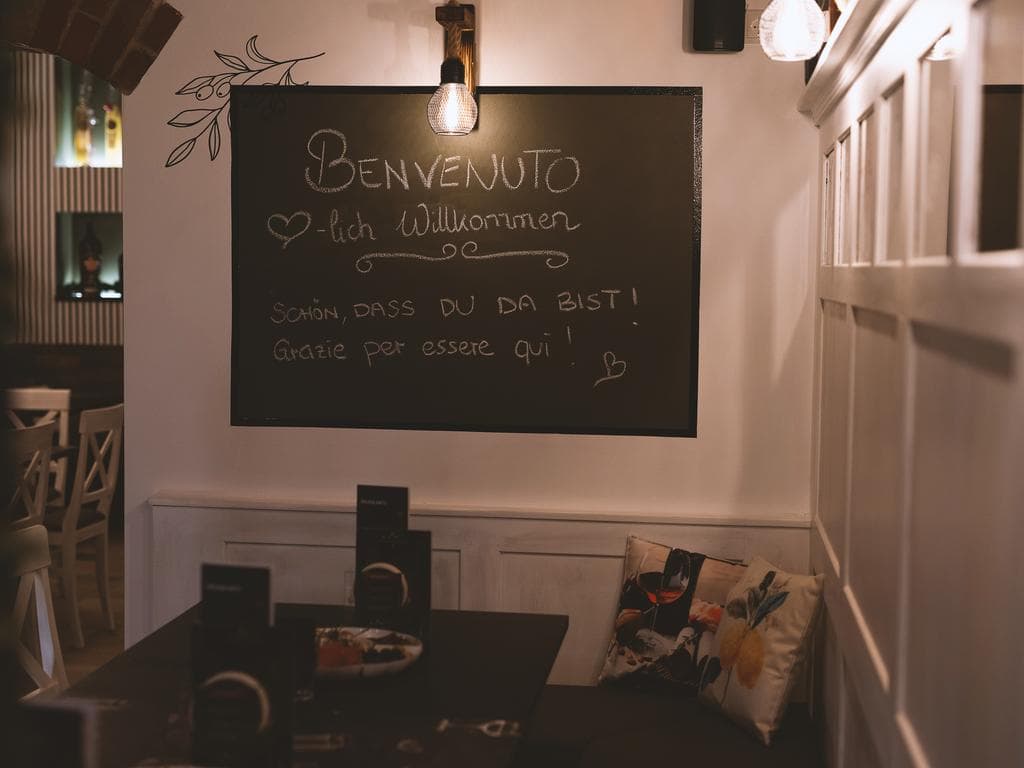 BENVENUTO
♡-lich Willkommen
SCHÖN, DASS DU DA BIST!
Grazie per essere qui!